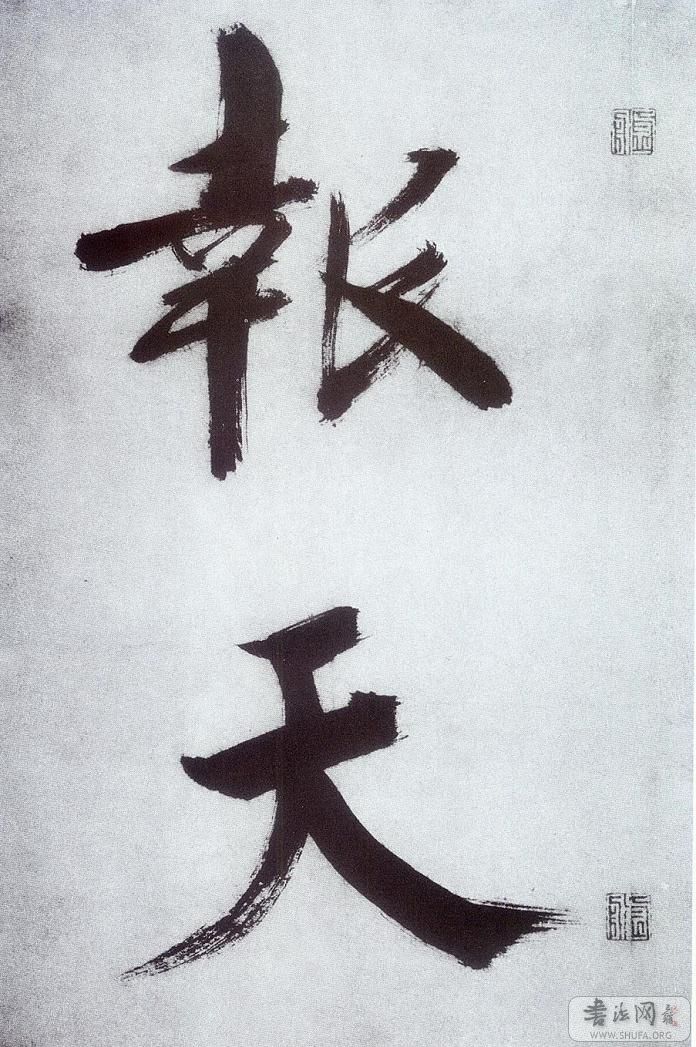 報天
書法网
WWW.SHUFA.ORG